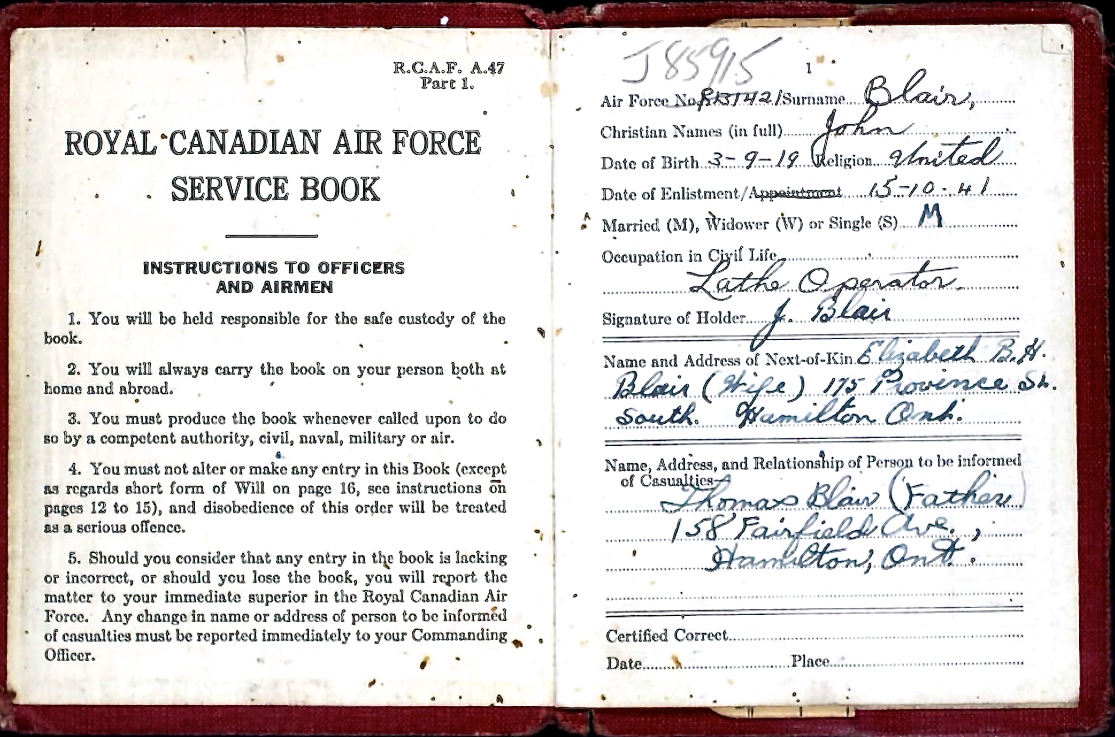 R.C.A.F. A.47
Part 1.
ROYAL CANADIAN AIR FORCE
SERVICE BOOK
INSTRUCTIONS TO OFFICERS
AND AIRMEN
1. You will be held responsible for the safe custody of the
book.
2. You will always carry the book on your person both at
home and abroad.
3. You must produce the book whenever called upon to do
so by a competent authority, civil, naval, military or air.
4. You must not alter or make any entry in this Book (except
as regards short form of Will on page 16, see instructions on
pages 12 to 15), and disobedience of this order will be treated
as a serious offence.
5. Should you consider that any entry in the book is lacking
or incorrect, or should you lose the book, you will report the
matter to your immediate superior in the Royal Canadian Air
Force. Any change in name or address of person to be informed
of casualties must be reported immediately to your Commanding
Officer.
J85915
1
Air Force No. Surname Blair,
Christian Names (in full) John
Date of Birth 3-9-19 Religion United
Date of Enlistment/Appointment 15-10-41
Married (M), Widower (W) or Single (S) M
Occupation in Civil Life
Lathe Operator.
Signature of Holder J. Blair
Name and Address of Next-of-Kin Elizabeth B.H.
Blair (Wife) 175 Province St.
South. Hamilton Ont.
Name, Address, and Relationship of Person to be informed
of Casualties
Thomas Blair (Father)
158 Fairfield Ave.,
Hamilton, Ont.
Certified Correct
Date Place